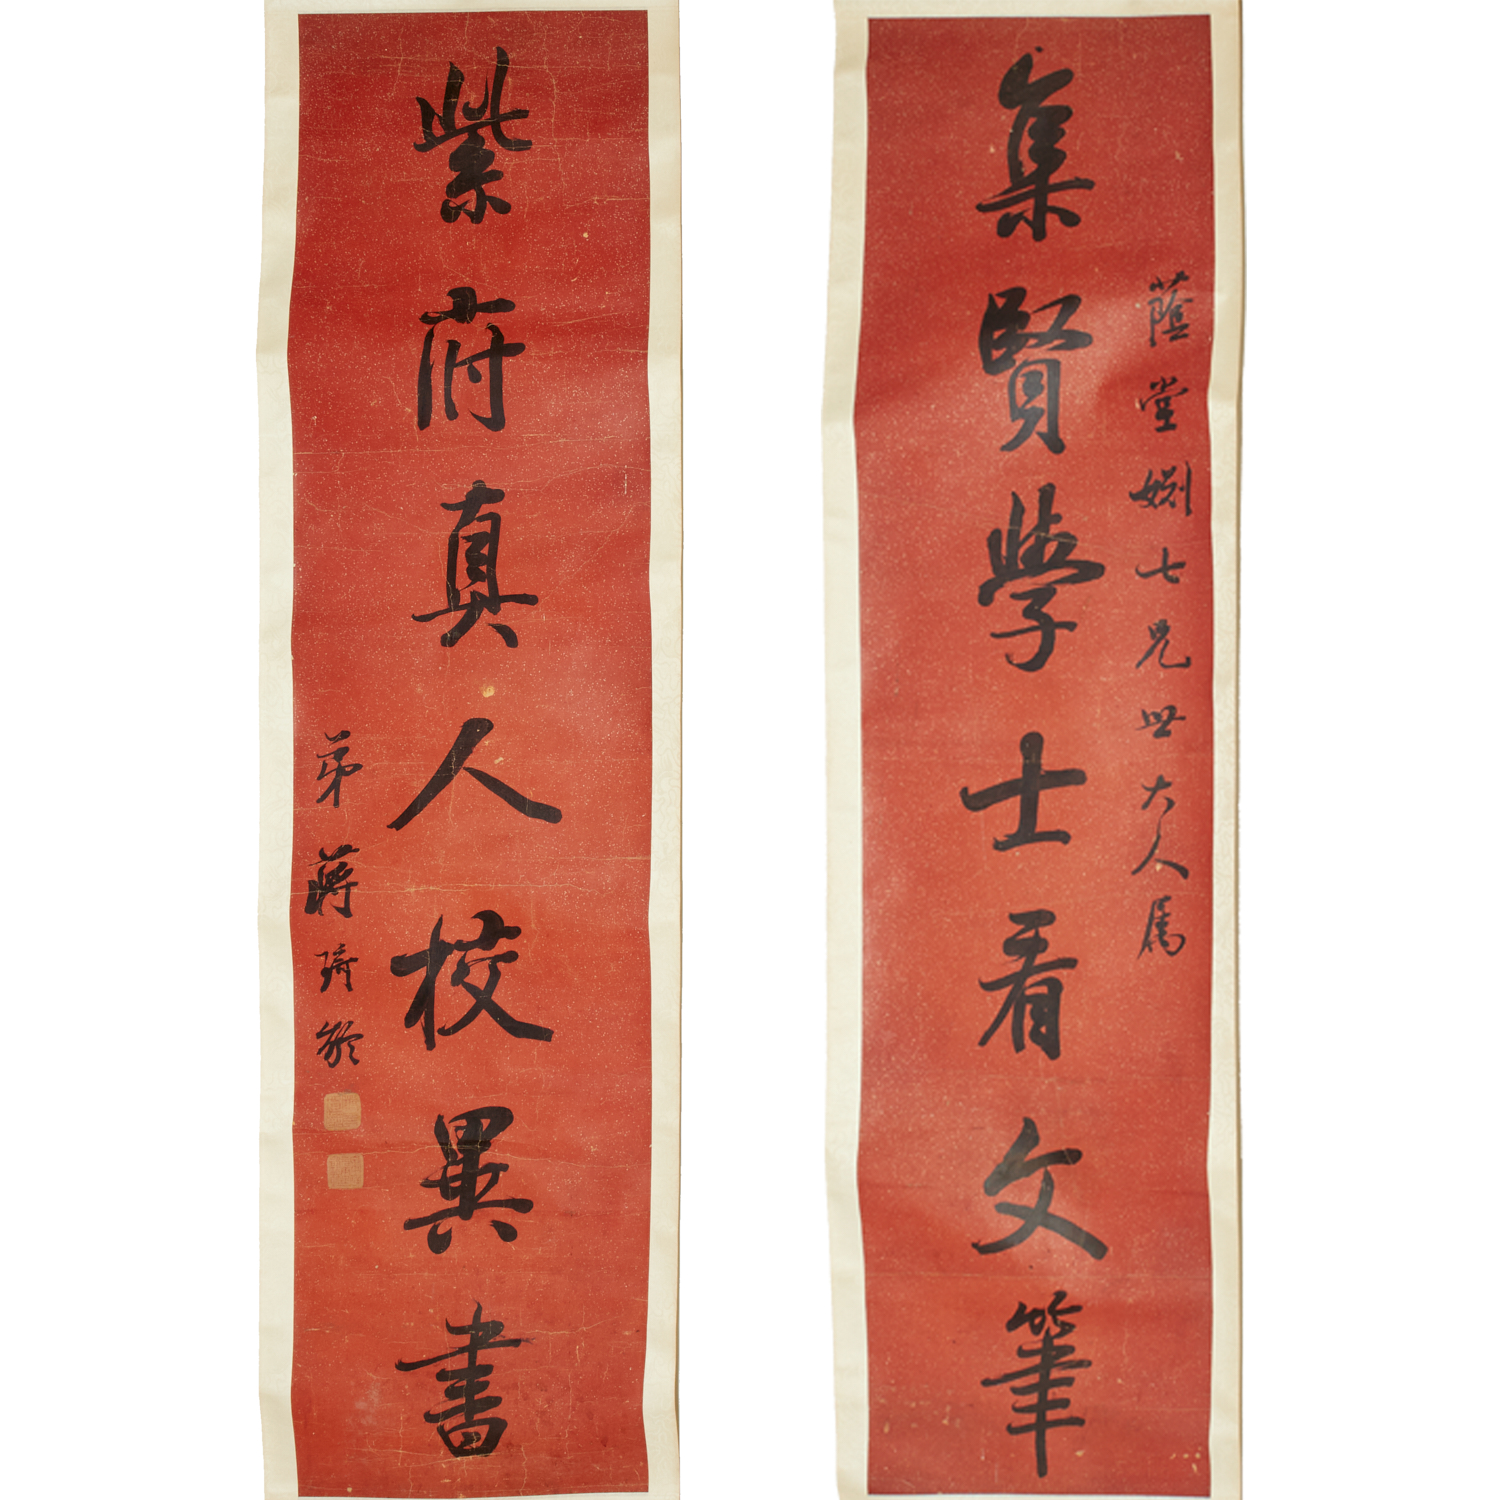 蔭堂婣七兄世大人属
集賢學士看文筆
紫府真人校異書
弟蔣琦齡